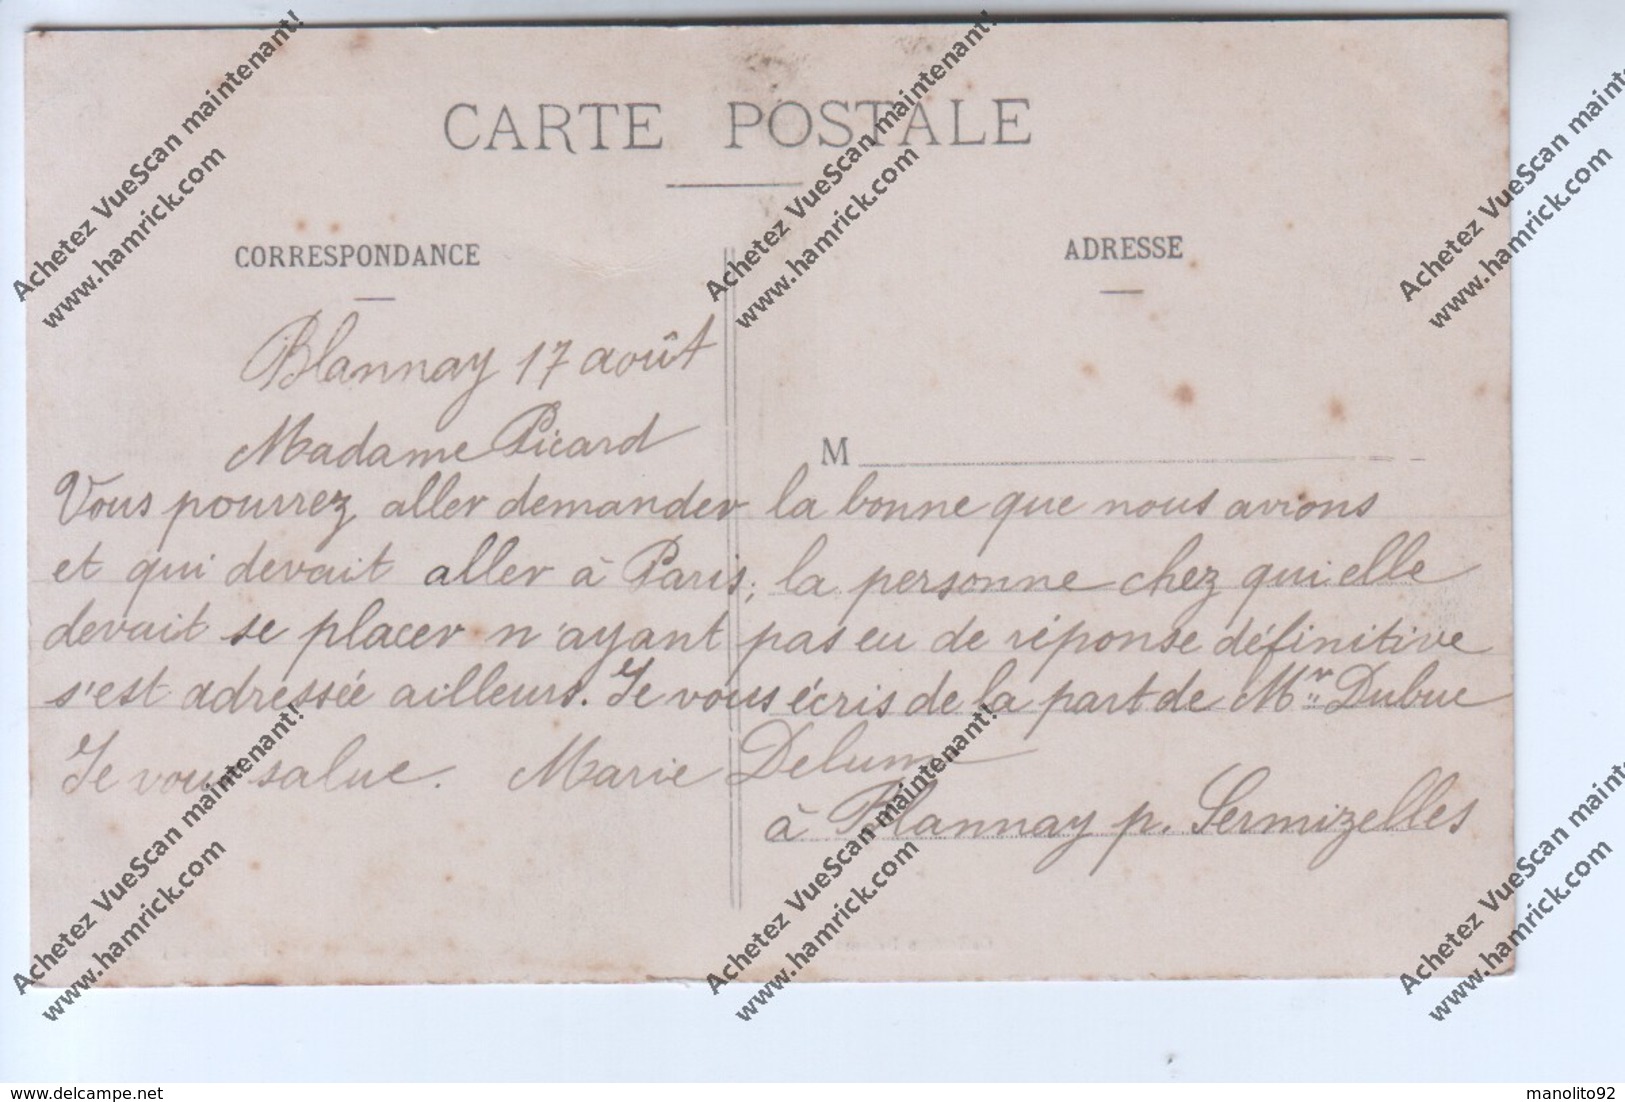 CARTE POSTALE
CORRESPONDANCE
ADRESSE
Blannay 17 août
Madame Picard
M
Vous pourrez aller demander la bonne que nous avions
et qui devait aller à Paris; la personne chez qui elle
devait se placer n'ayant pas eu de réponse définitive
s'est adressée ailleurs. Je vous écris de la part de Mr Dubuc
Je vous salue. Marie
à Blannay p. Sermizelles
Achetez VueScan maintenant!
www.hamrick.com
Achetez VueScan maintenant!
www.hamrick.com
Achetez VueScan maintenant!
www.hamrick.com
Achetez VueScan maintenant!
www.hamrick.com
Achetez VueScan maintenant!
www.hamrick.com
Achetez VueScan maintenant!
www.hamrick.com
www.delcampe.net
manolito92